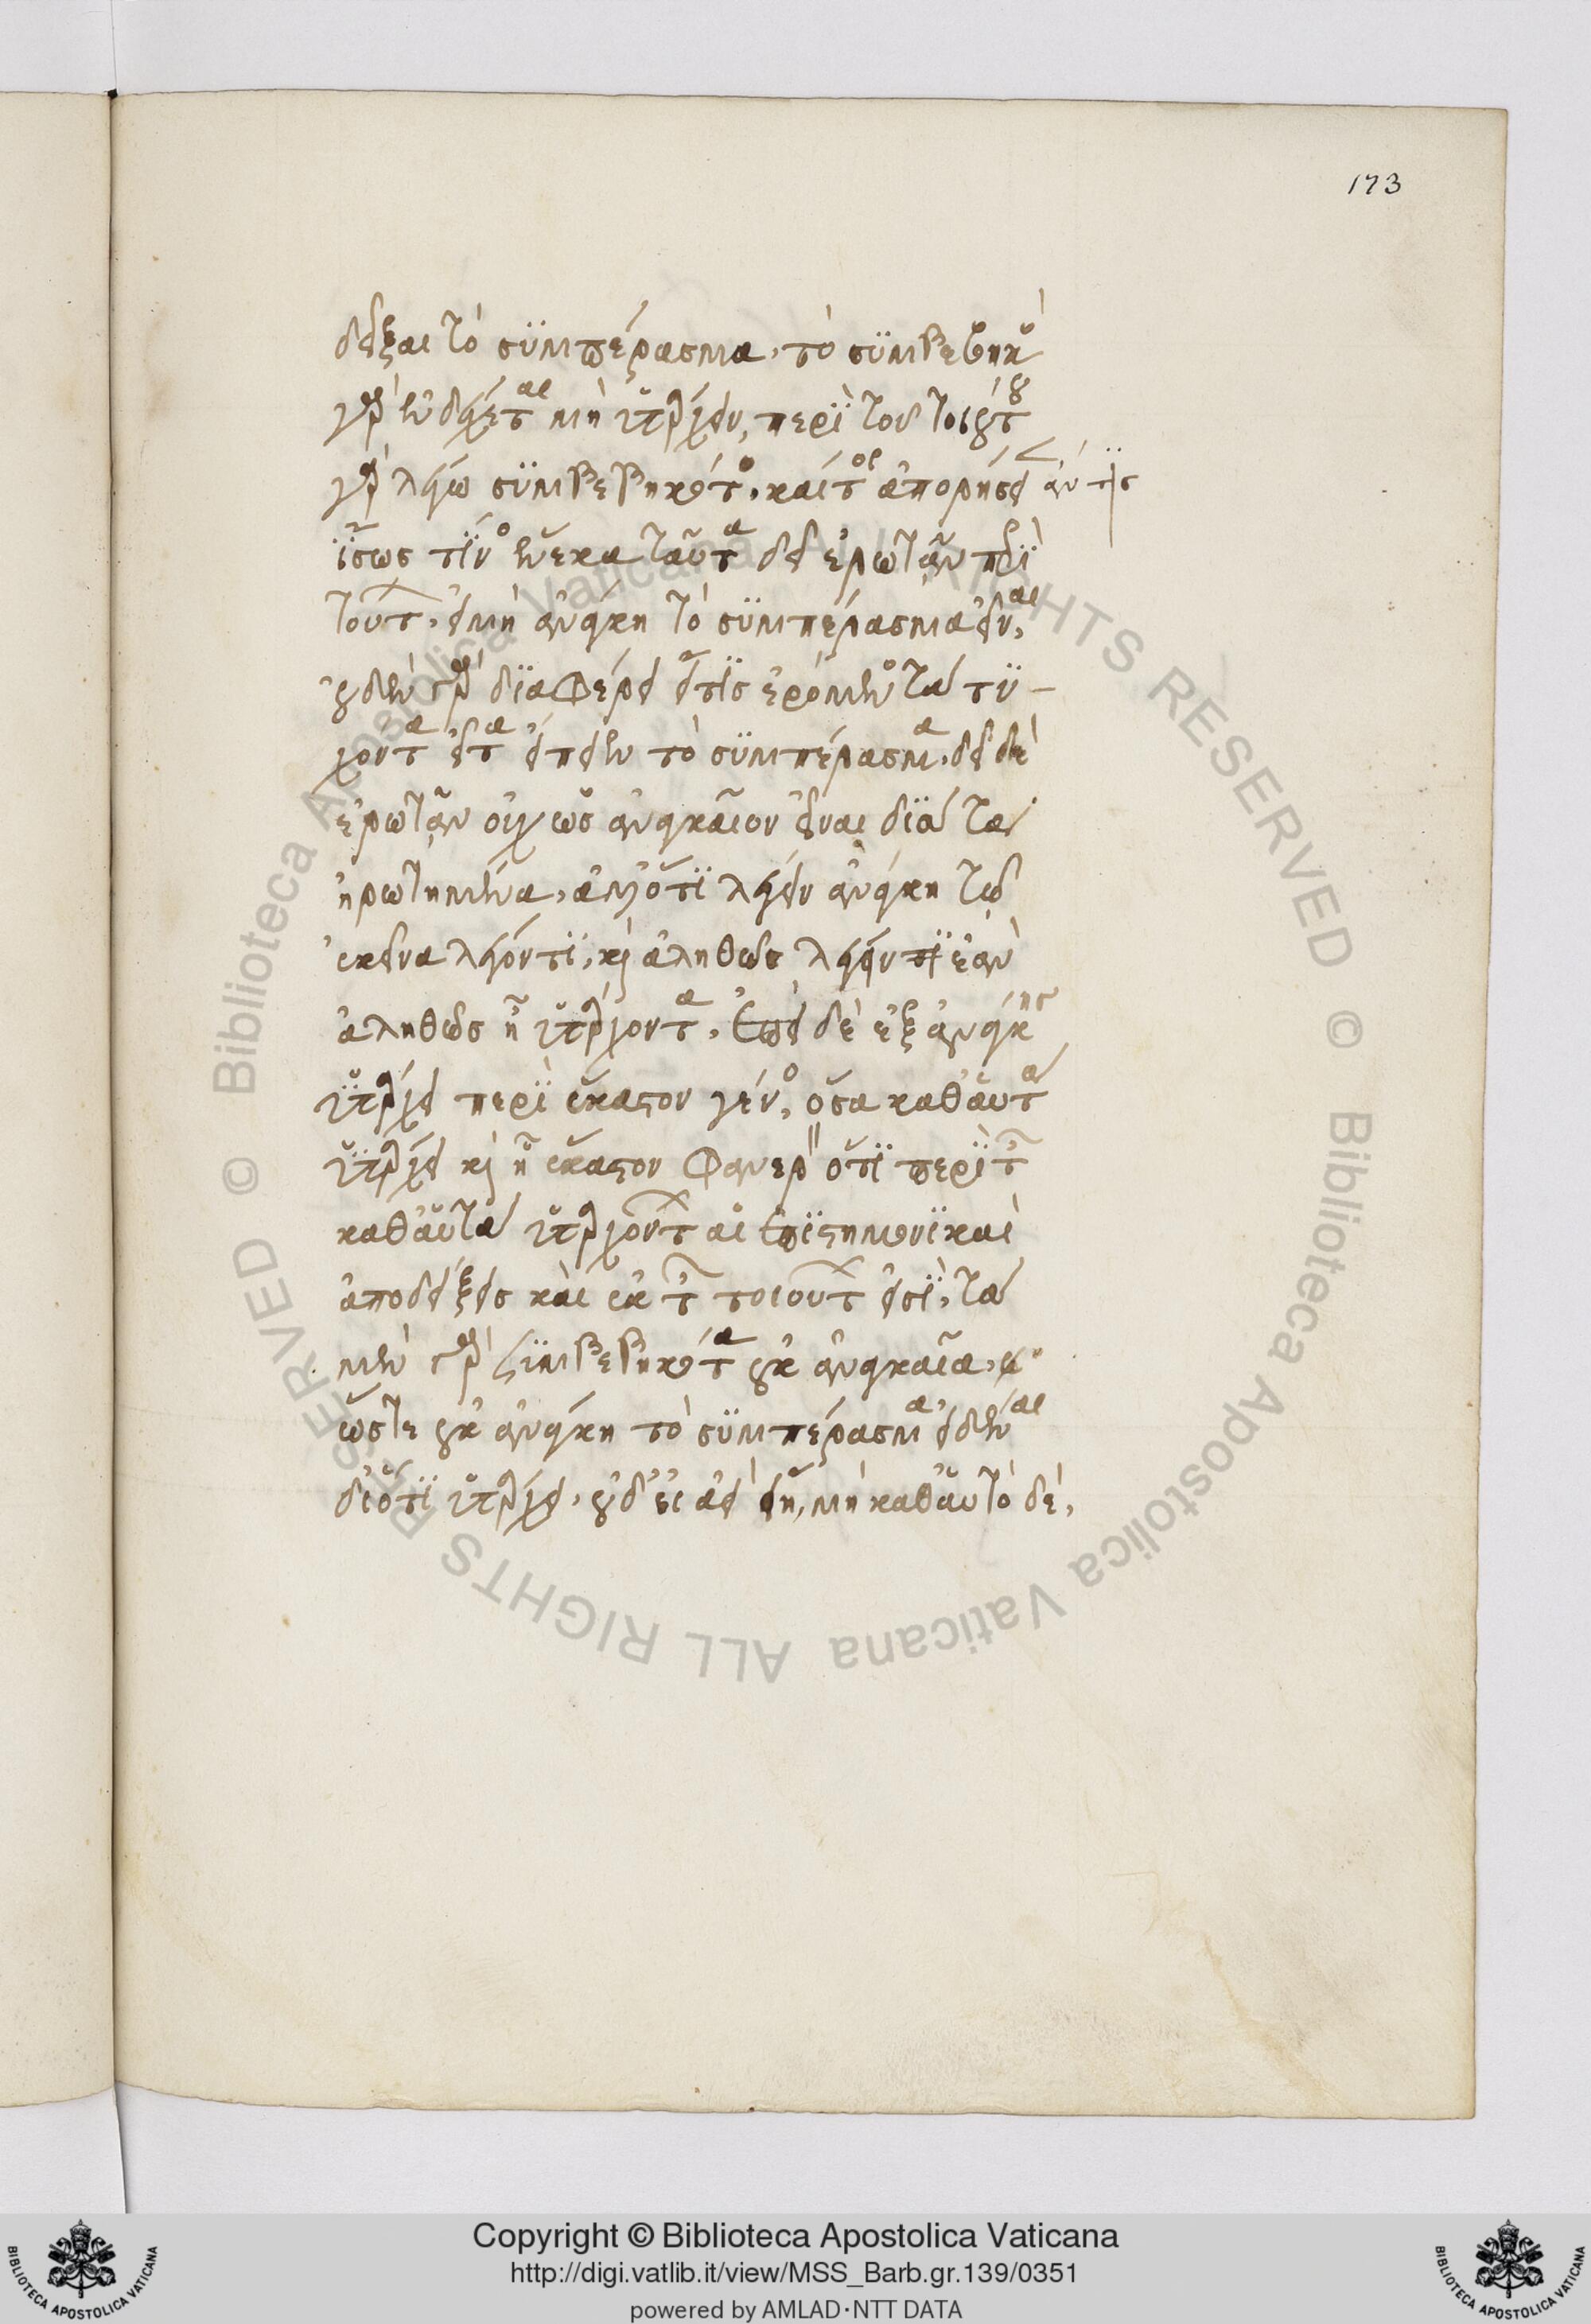 173
δεῖξαι τὸ συμπέρασμα· τὸ συμβεβηκὸς
γὰρ ἐνδέχεται μὴ ὑπάρχειν, περὶ τοῦ τοιούτου
γὰρ λέγω συμβεβηκότος· καίτοι ἀπορήσειεν ἄν τις
ἴσως τίνος ἕνεκα ταῦτα δεῖ ἐρωτᾶν περὶ
τούτων, εἰ μὴ ἀνάγκη τὸ συμπέρασμα εἶναι,
οὐδὲν γὰρ διαφέρει εἴ τις ἐρόμενος τὰ τυ-
χόντα εἶτα εἴπειεν τὸ συμπέρασμα· δεῖ δὲ
ἐρωτᾶν οὐχ ὡς ἀναγκαῖον εἶναι διὰ τὰ
ἠρωτημένα, ἀλλ' ὅτι λέγειν ἀνάγκη τῷ
ἐκεῖνα λέγοντι, καὶ ἀληθῶς λέγειν ἐὰν
ἀληθῶς ᾖ ὑπάρχοντα· ἐπεὶ δὲ ἐξ ἀνάγκης
ὑπάρχει περὶ ἕκαστον γένος, ὅσα καθ' αὑτὰ
ὑπάρχει καὶ ᾗ ἕκαστον φανερὸν ὅτι περὶ τῶν
καθ' αὑτὰ ὑπαρχόντων αἱ ἐπιστημονικαὶ
ἀποδείξεις καὶ ἐκ τῶν τοιούτων εἰσί, τὰ
μὲν γὰρ συμβεβηκότα οὐκ ἀναγκαῖα,
ὥστε οὐκ ἀνάγκη τὸ συμπέρασμα εἰδέναι
διότι ὑπάρχει, οὐδ' εἰ ἀεὶ εἴη, μὴ καθ' αὑτὸ δέ,
Copyright © Biblioteca Apostolica Vaticana
http://digi.vatlib.it/view/MSS_Barb.gr.139/0351
powered by AMLAD·NTT DATA
BIBLIOTECA APOSTOLICA VATICANA
BIBLIOTECA APOSTOLICA VATICANA
© Biblioteca Apostolica Vaticana ALL RIGHTS RESERVED © Biblioteca Apostolica Vaticana ALL RIGHTS RESERVED